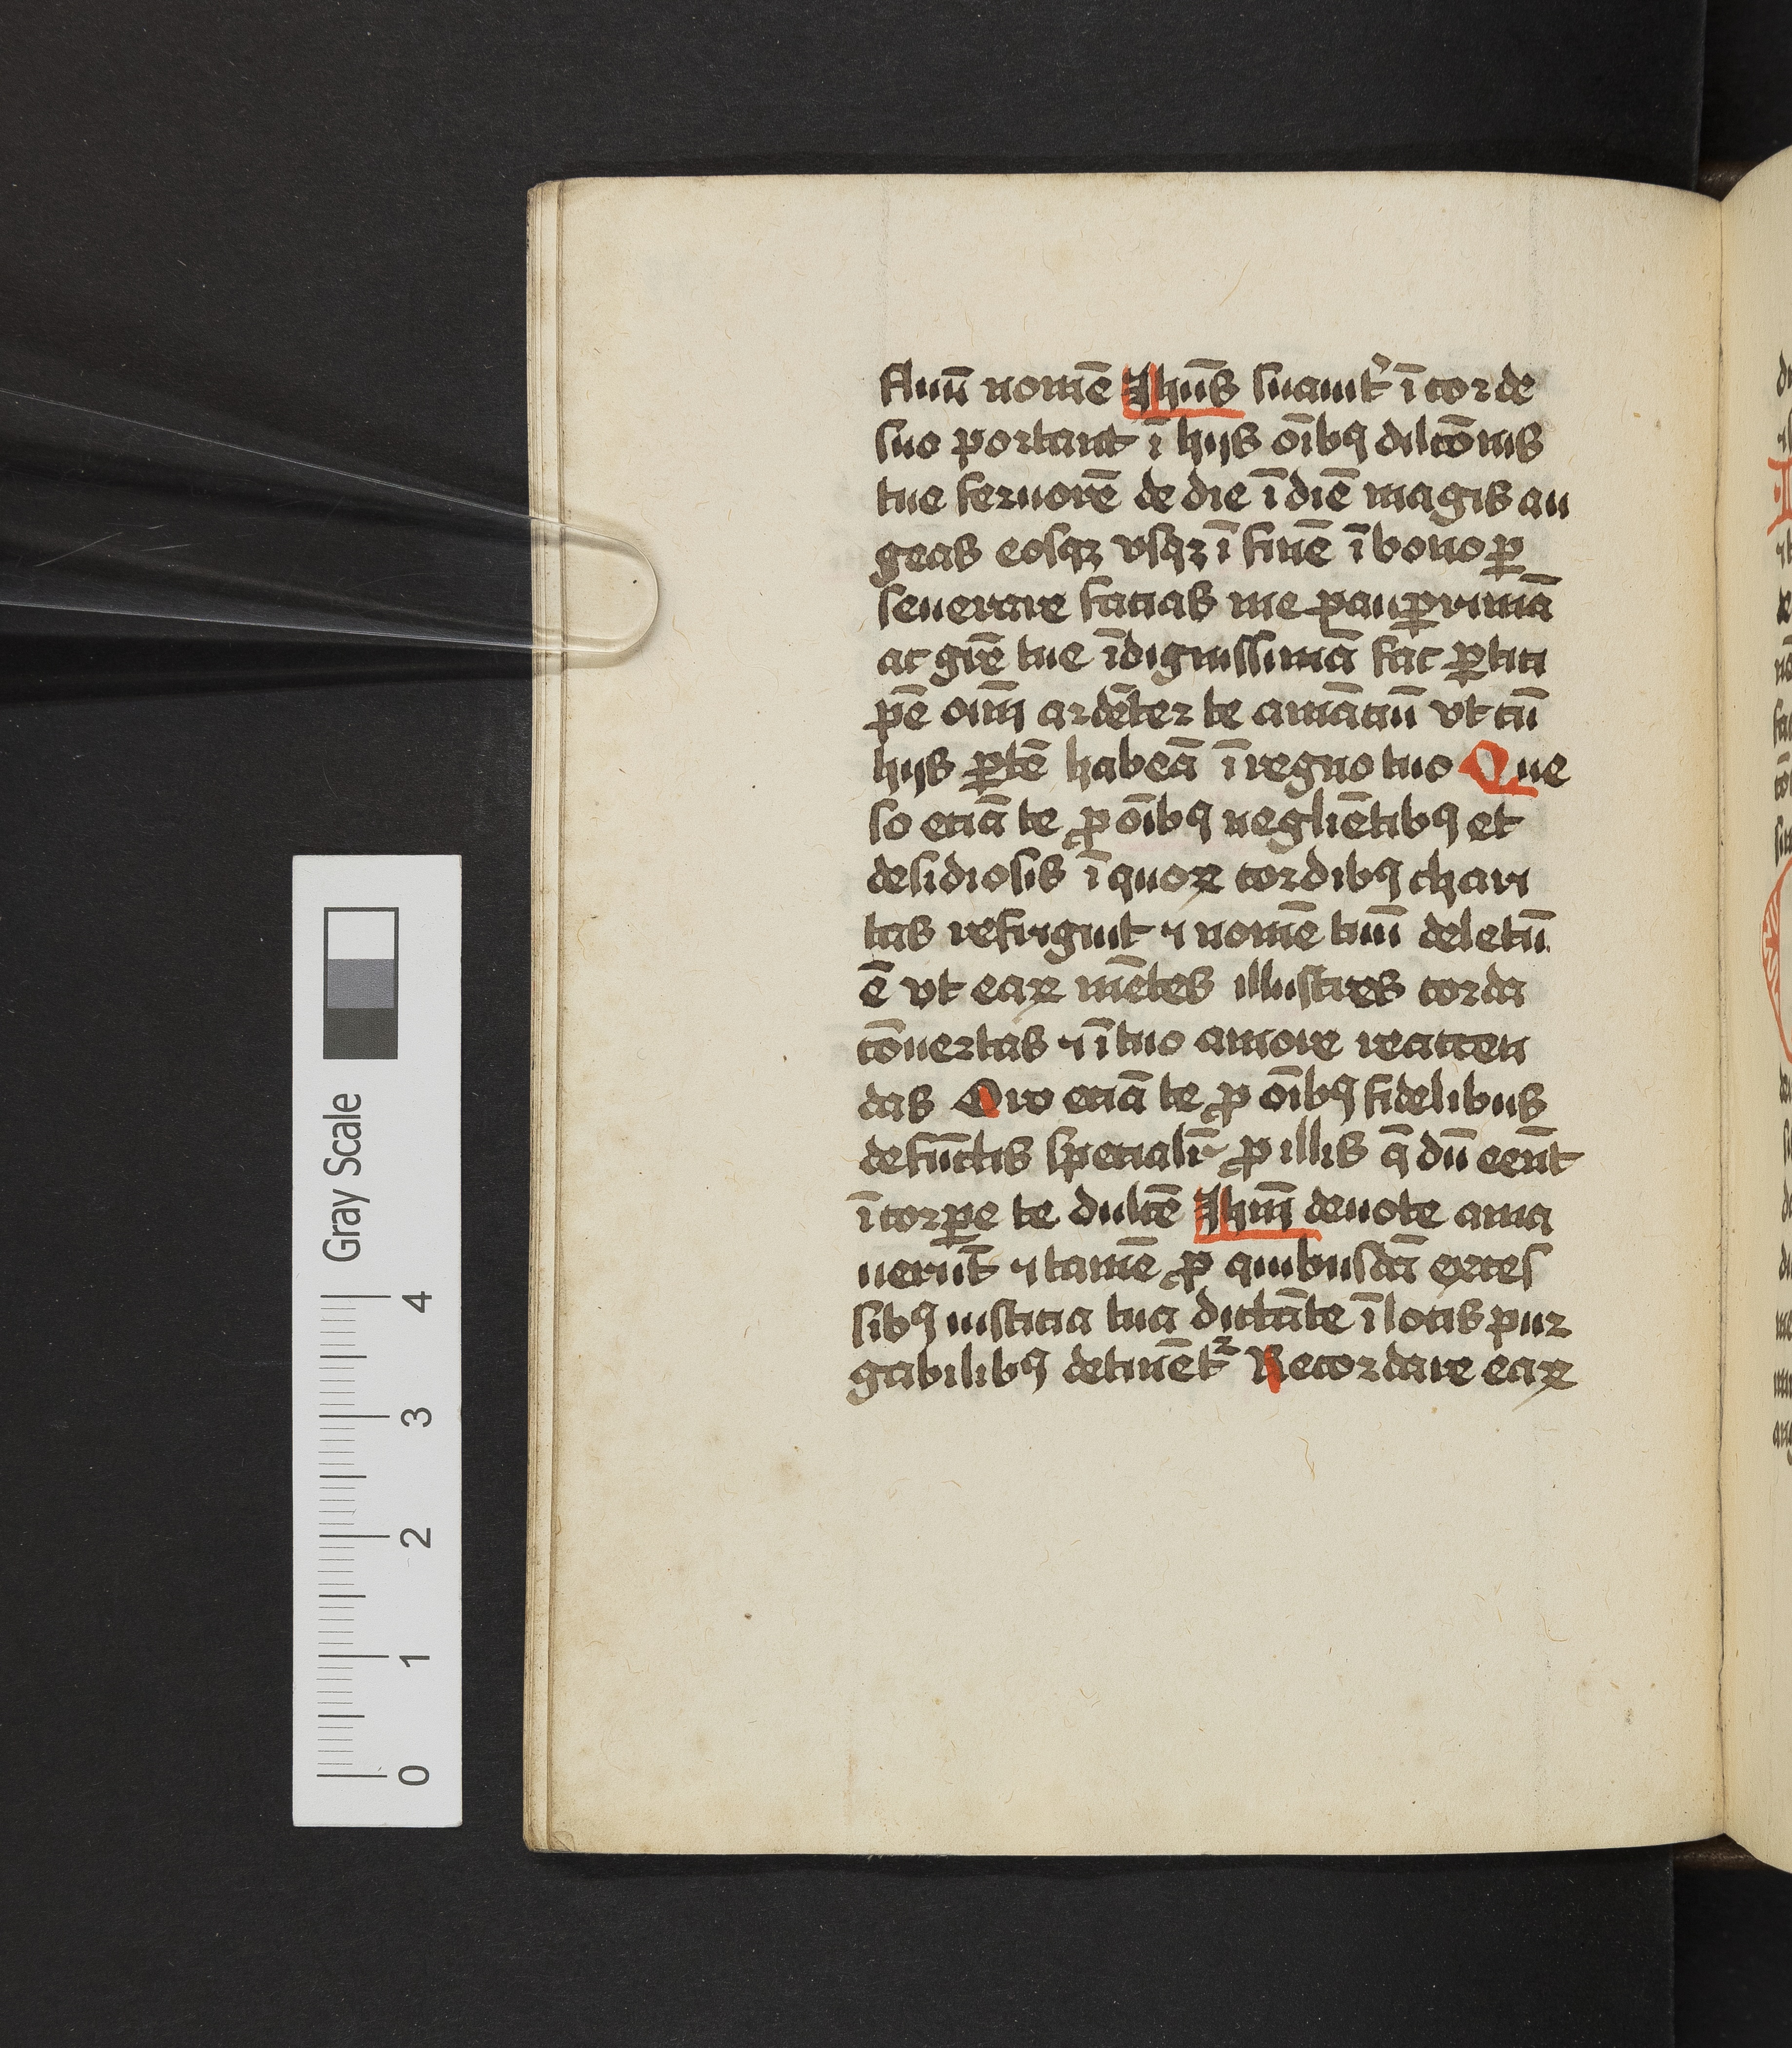 fluū nomē Ihūs suauitʾ ī corde
suo portant ī hijs oībꝯ dilcōnis
tue feruorē de die ī diē magis au
geas eosqꝫ vsqꝫ ī finē ī bono ꝑ
seuerare facias me pauꝑrimā
ac grē tue īdignissimā fac ꝑtici
pē oīm ardēter te amāciū vt cū
hijs ꝑtē habeā ī regno tuo Que
so eciā te ꝓ oībꝯ negliētibꝯ et
desidiosis ī quoꝝ cordibꝯ chari
tas refriguit ⁊ nomē tuū deletū
ē vt eaꝝ mētes illustres corda
cōuertas ⁊ ī tuo amore reaccen
das Oro eciā te ꝓ oībꝯ fidelibus
defūctis specialīt ꝓ illis q̄ dū eēnt
ī corꝑe te dulcē Ihm̄ deuote ama
uerūt ⁊ tamē ꝓ quibusdā exces
sibꝯ iusticia tua dictāte ī locis pur
gabilibꝯ detinētᷣ Recordare eaꝝ
Gray Scale
4
3
2
1
0